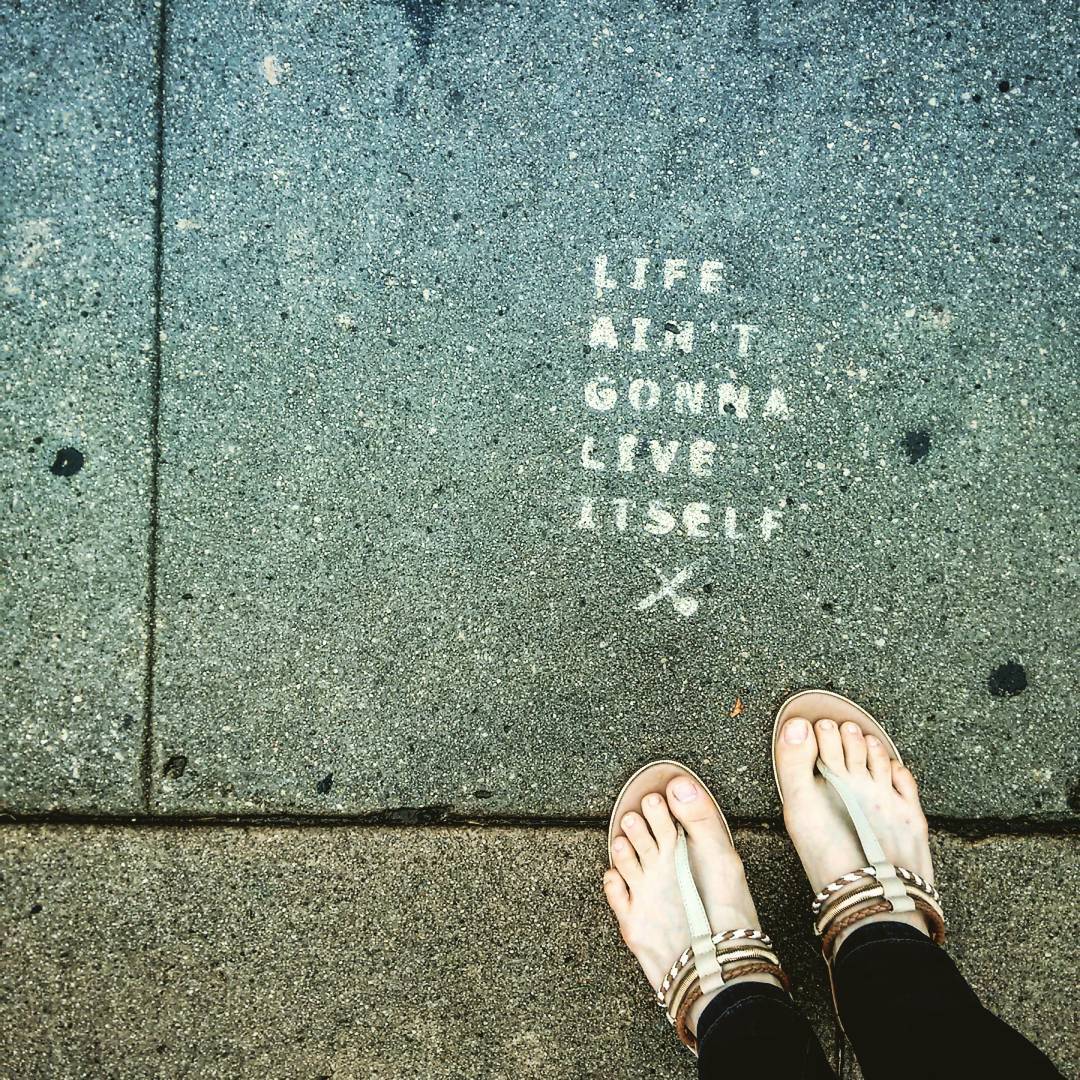 LIFE
AIN'T
GONNA
LIVE
ITSELF